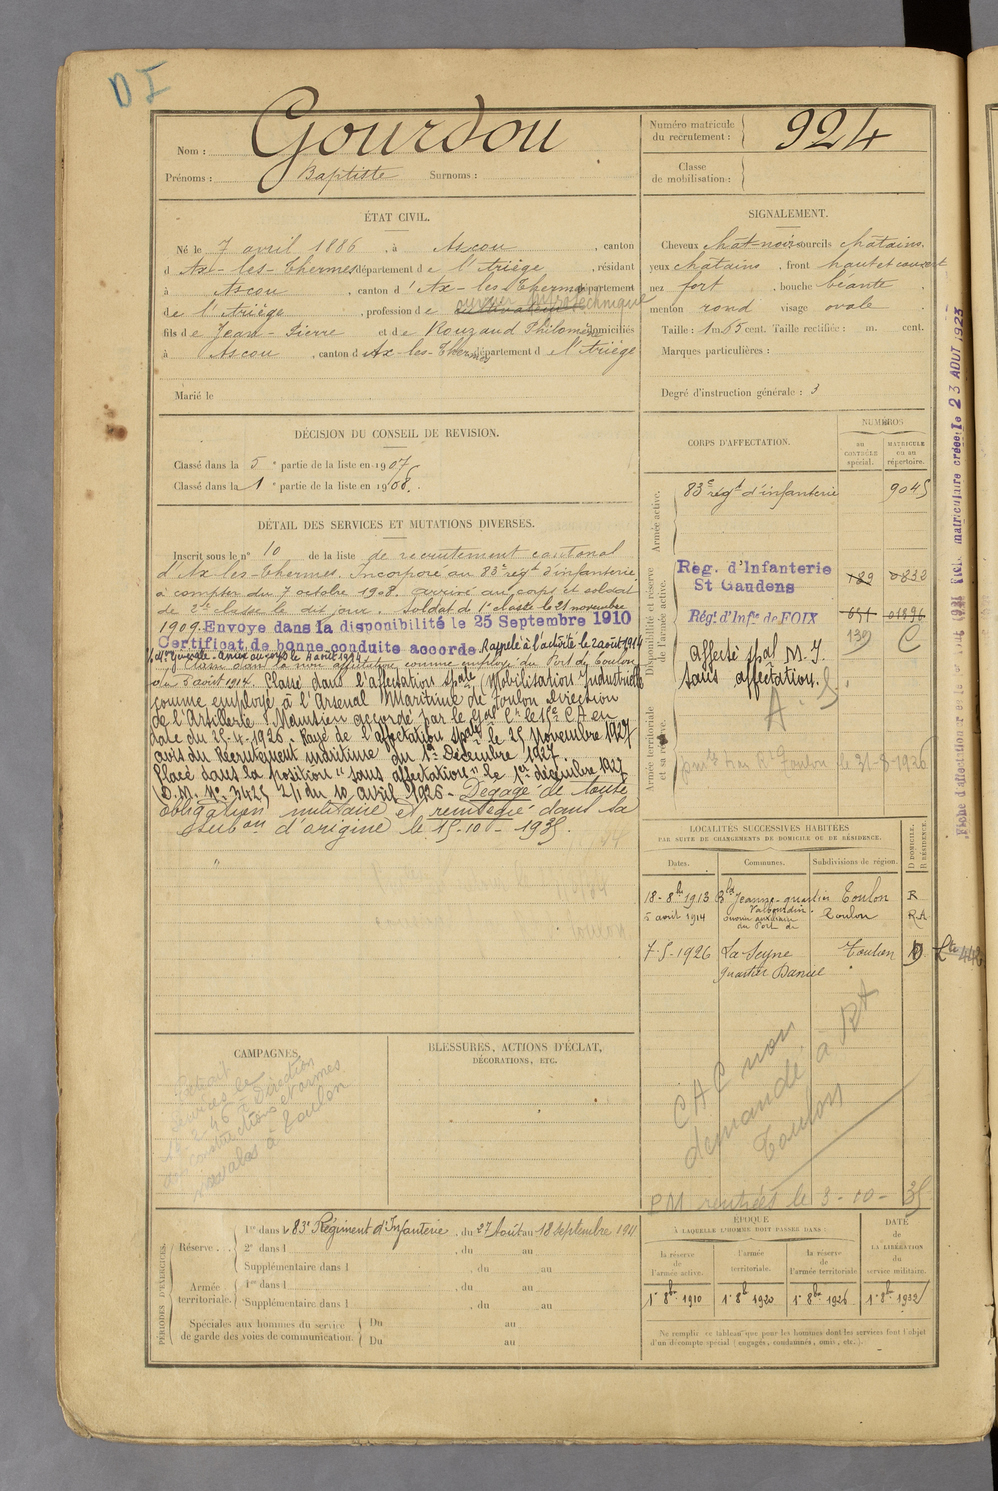 D I
Nom : Gourdou
Prénoms : Baptiste Surnoms :
Numéro matricule du recrutement : 924
Classe de mobilisation :
ÉTAT CIVIL.
Né le 7 avril 1886, à Ascou, canton
d'Ax-les-Thermes département de l'Ariège, résidant
à Ascou, canton d'Ax-les-Thermes département
de l'Ariège, profession de ouvrier pyrotechnique
fils de Jean-Pierre et de Rouzaud Philomène domiciliés
à Ascou, canton d'Ax-les-Thermes département de l'Ariège
Marié le
SIGNALEMENT.
Cheveux chat-noir sourcils châtains.
yeux châtains, front haut et couvert
nez fort, bouche béante
menton rond visage ovale
Taille : 1m 65 cent. Taille rectifiée : m. cent.
Marques particulières :
Degré d'instruction générale : 3
DÉCISION DU CONSEIL DE REVISION.
Classé dans la 5e partie de la liste en 1907
Classé dans la 1e partie de la liste en 1908.
DÉTAIL DES SERVICES ET MUTATIONS DIVERSES.
Inscrit sous le n° 10 de la liste de recrutement cantonal
d'Ax-les-Thermes. Incorporé au 83e régt d'infanterie
à compter du 7 octobre 1908. arrivé au corps et soldat
de 2de classe le dit jour. Soldat de 1e classe le 21 novembre
1909. Envoyé dans la disponibilité le 25 Septembre 1910
Certificat de bonne conduite accordé Rappelé à l'activité le 2 août 1914
Générale - Arrivé au corps le 4 août 1914
Classé dans la non affectation comme employé du Port de Toulon
du 5 août 1914. Classé dans l'affectation spale (Mobilisation Industrielle
comme employé à l'Arsenal Maritime de Toulon Direction
de l'Artillerie. Maintien accordé par le Gal Ct le 15e CA en
date du 25-4-1926 - Rayé de l'affectation spale le 25 Novembre 1927
avis du Recrutement maritime du 1er Décembre 1927
Placé dans la position "sans affectation" le 1er décembre 1927
D.M. N° 3425 2/1 du 10 avril 1926 - Dégagé de toute
obligation militaire et réintégré dans sa
subon d'origine le 15-10-1935.
CORPS D'AFFECTATION.
NUMÉROS
au CONTRÔLE spécial.
MATRICULE ou au répertoire.
Armée active.
83e régt d'infanterie 9045
Disponibilité et réserve de l'armée active.
Rég. d'Infanterie St Gaudens 182 0832
Rég. d'Infie de FOIX 651 01896
139 C
Affecté spal M.I.
sans affectation.
A. S
Armée territoriale et sa réserve.
Toulon le 31-8-1926
Fiche matriculaire créée le 23 AOUT 1923
LOCALITÉS SUCCESSIVES HABITÉES
PAR SUITE DE CHANGEMENTS DE DOMICILE OU DE RÉSIDENCE.
Dates. Communes. Subdivisions de région. D DOMICILE. R RÉSIDENCE.
18-8bre 1913 quartier Valbourdin Toulon R
5 avril 1914 ouvrier auxiliaire au Port de Toulon RA
7-5-1926 La Seyne Toulon D
quartier Daniel
CAC non
demandé à Rt
Toulon
PM rentrées le 3-10-35
CAMPAGNES.
Extrait
services le
12-2-46 à Direction
des constructions et armes
navales à Toulon
BLESSURES, ACTIONS D'ÉCLAT,
DÉCORATIONS, ETC.
PÉRIODES D'EXERCICES.
Réserve . . 1re dans le 83e Régiment d'Infanterie, du 27 Août au 18 septembre 1911
2e dans l , du au
Supplémentaire dans l , du au
Armée territoriale. 1re dans l , du au
Supplémentaire dans l , du au
Spéciales aux hommes du service de garde des voies de communication. Du au
Du au
ÉPOQUE
À LAQUELLE L'HOMME DOIT PASSER DANS :
la réserve de l'armée active.
l'armée territoriale.
la réserve de l'armée territoriale
DATE de LA LIBÉRATION du service militaire.
1r 8bre 1910 1r 8bre 1920 1r 8bre 1926 1r 8bre 1932
Ne remplir ce tableau que pour les hommes dont les services font l'objet
d'un décompte spécial (engagés, condamnés, omis, etc.).